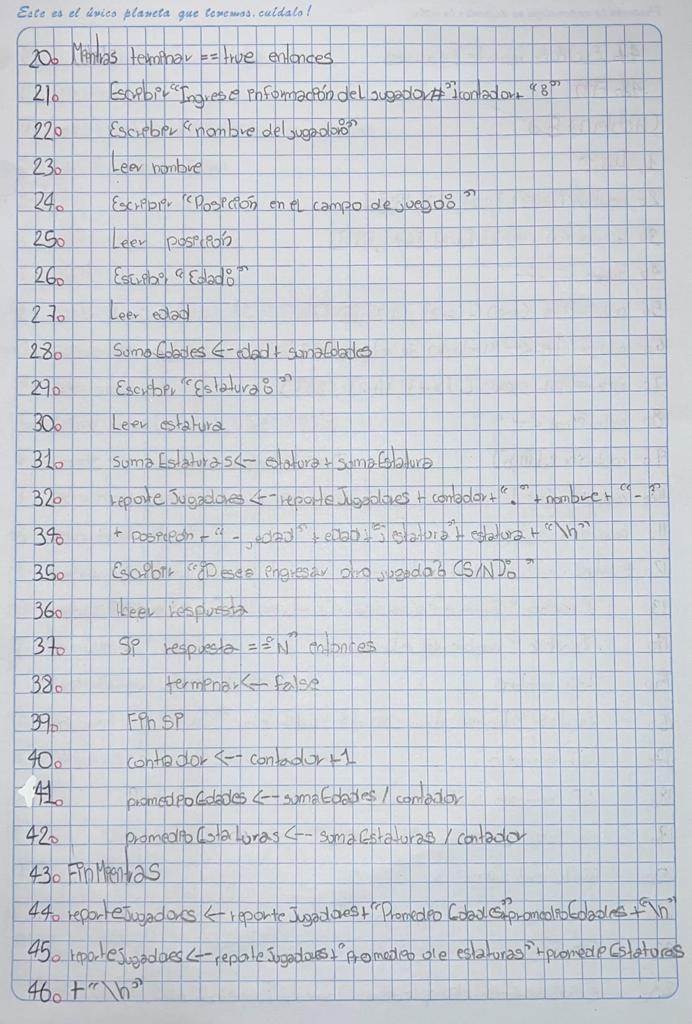 Este es el único planeta que tenemos, cuídalo!
20. Mientras terminar == true entonces
21. Escribir "Ingrese información del jugador #" + contador + ":"
22. Escribir "nombre del jugador:"
23. Leer nombre
24. Escribir "Posición en el campo de juego: "
25. Leer posición
26. Escribir "Edad:"
27. Leer edad
28. sumaEdades <- edad + sumaEdades
29. Escribir "Estatura: "
30. Leer estatura
31. sumaEstaturas <- estatura + sumaEstatura
32. reporteJugadores <- reporteJugadores + contador + "." + nombre + "-"
34. + posición + "-, edad" + edad + "; estatura" + estatura + "\n"
35. Escribir "¿Desea ingresar otro jugador? (S/N): "
36. Leer respuesta
37. Si respuesta == "N" entonces
38. terminar <- false
39. Fin Si
40. contador <- contador + 1
41. promedioEdades <- sumaEdades / contador
42. promedioEstaturas <- sumaEstaturas / contador
43. Fin Mientras
44. reporteJugadores <- reporteJugadores + "Promedio Edades" + promedioEdades + "\n"
45. reporteJugadores <- reporteJugadores + "Promedio de estaturas" + promedioEstaturas
46. + "\n"